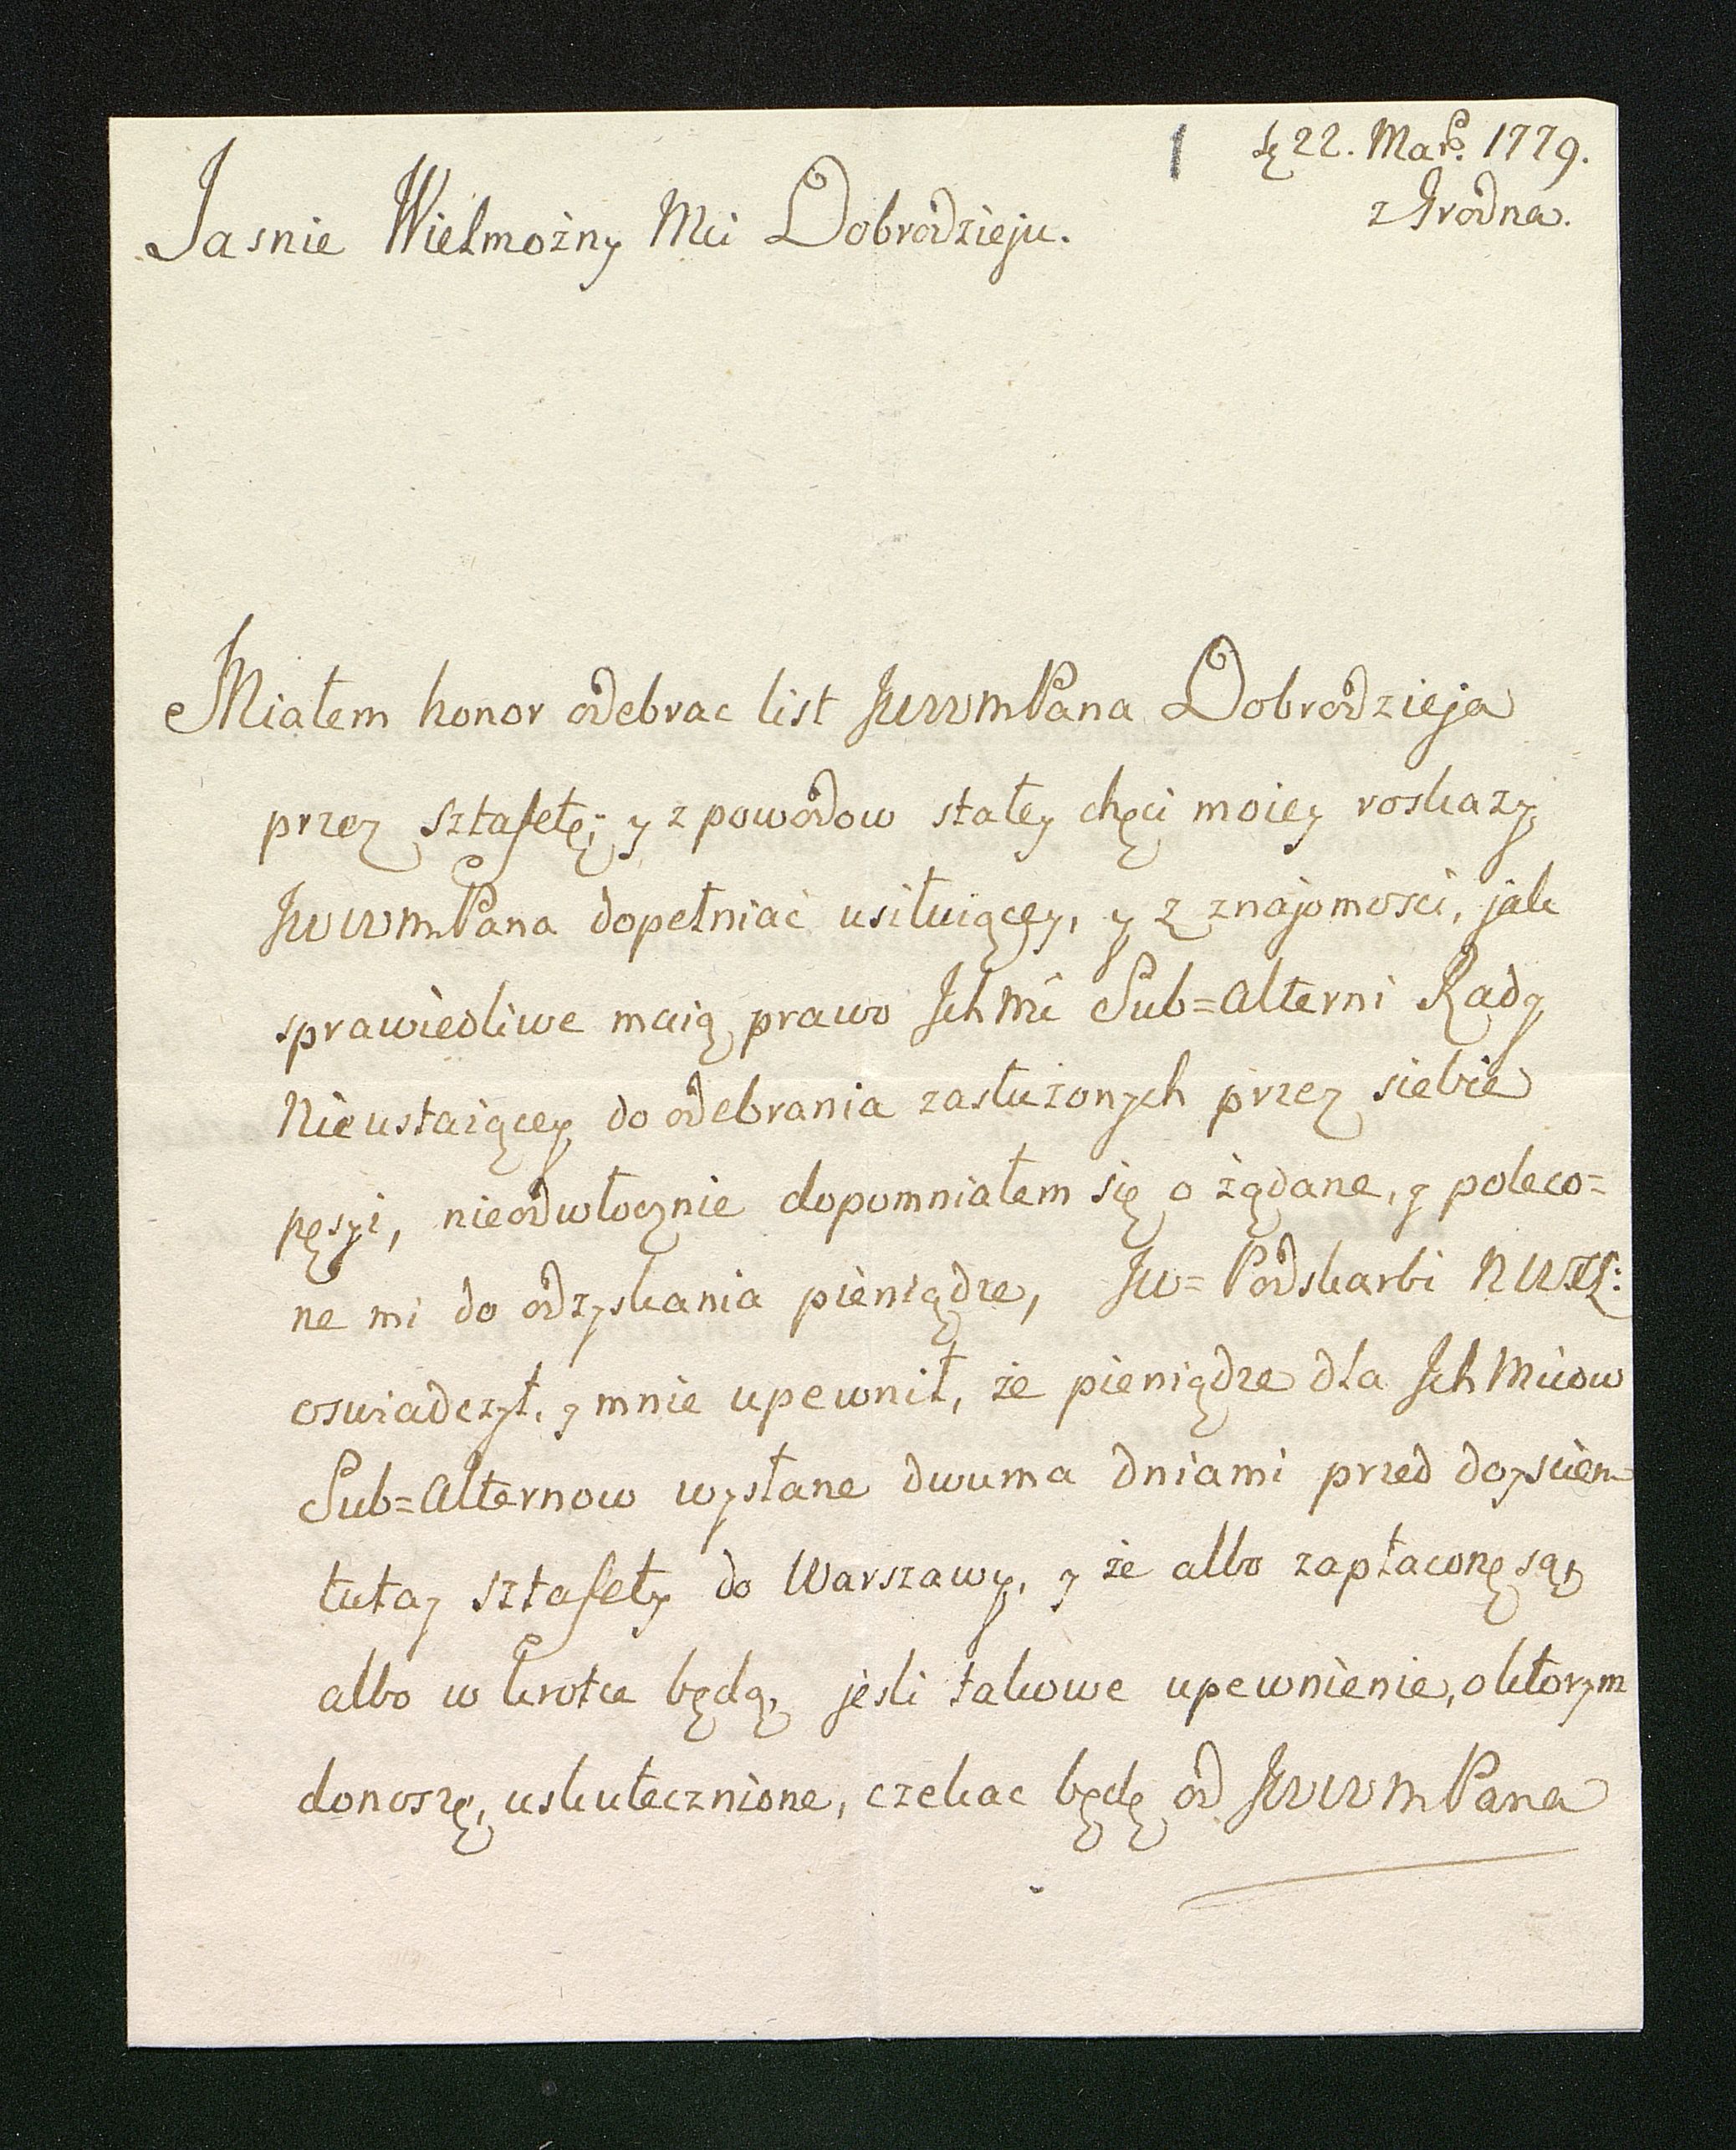 1
22. Mar. 1779.
z Grodna.
Jasnie Wielmożny Mci Dobrodzieju.
Miałem honor odebrac list JWWmPana Dobrodzieja
przez sztafetę; y z powodow stałey chęci moiey roskazy
JWWmPana dopełniać usiłuiącey, y z znajomosci, jak
sprawiedliwe maią prawo Ich Mć Sub=Alterni Rady
Nieustaiącey do odebrania zasłużonych przez siebie
pęsyi, nieodwłocznie dopomniałem się o żądane, y poleco=
ne mi do odzyskania pieniądze, JW= Podskarbi NWXL:
oswiadczył, y mnie upewnił, że pieniądze dla Ich Mciow
Sub=Alternow wysłane dwuma dniami przed doysciem
tutay sztafety do Warszawy, y że albo zapłaconę są,
albo w krotce będą, jesli takowe upewnienie, o ktorym
donoszę, uskutecznione, czekac będę od JWWmPana